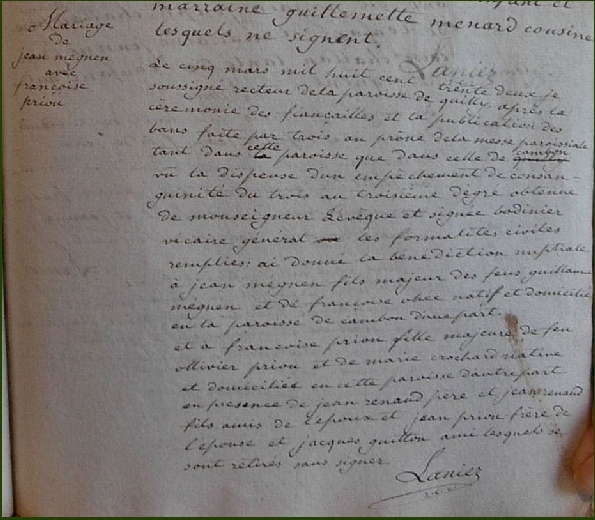 marraine guillemette menard cousine
lesquels ne signent.
Laniez
Mariage
de
jean megnen
avec
françoise
priou
Le cinq mars mil huit cent trente deux je
soussigné recteur de la paroisse de quilly, après la
cérémonie des fiançailles et la publication des
bans faite par trois au prône de la messe paroissiale
tant dans cette paroisse que dans celle de cambon
vu la dispense d'un empêchement de consan-
guinité du trois au troisième degré obtenue
de monseigneur L'evêque et signée bodinier
vicaire général les formalités civiles
remplies; ai donné la bénédiction nuptiale
à jean megnen fils majeur des feus guillaume
megnen et de françoise natif et domicilié
en la paroisse de cambon d'une part.
et a françoise priou fille majeure de feu
ollivier priou et de marie crochard native
et domiciliée en cette paroisse d'autre part
en presence de jean renaud père et jean renaud
fils amis de l'epoux et jean priou frère de
l'epouse et jacques guitton ami lesquels se
sont retirés sans signer.
Laniez